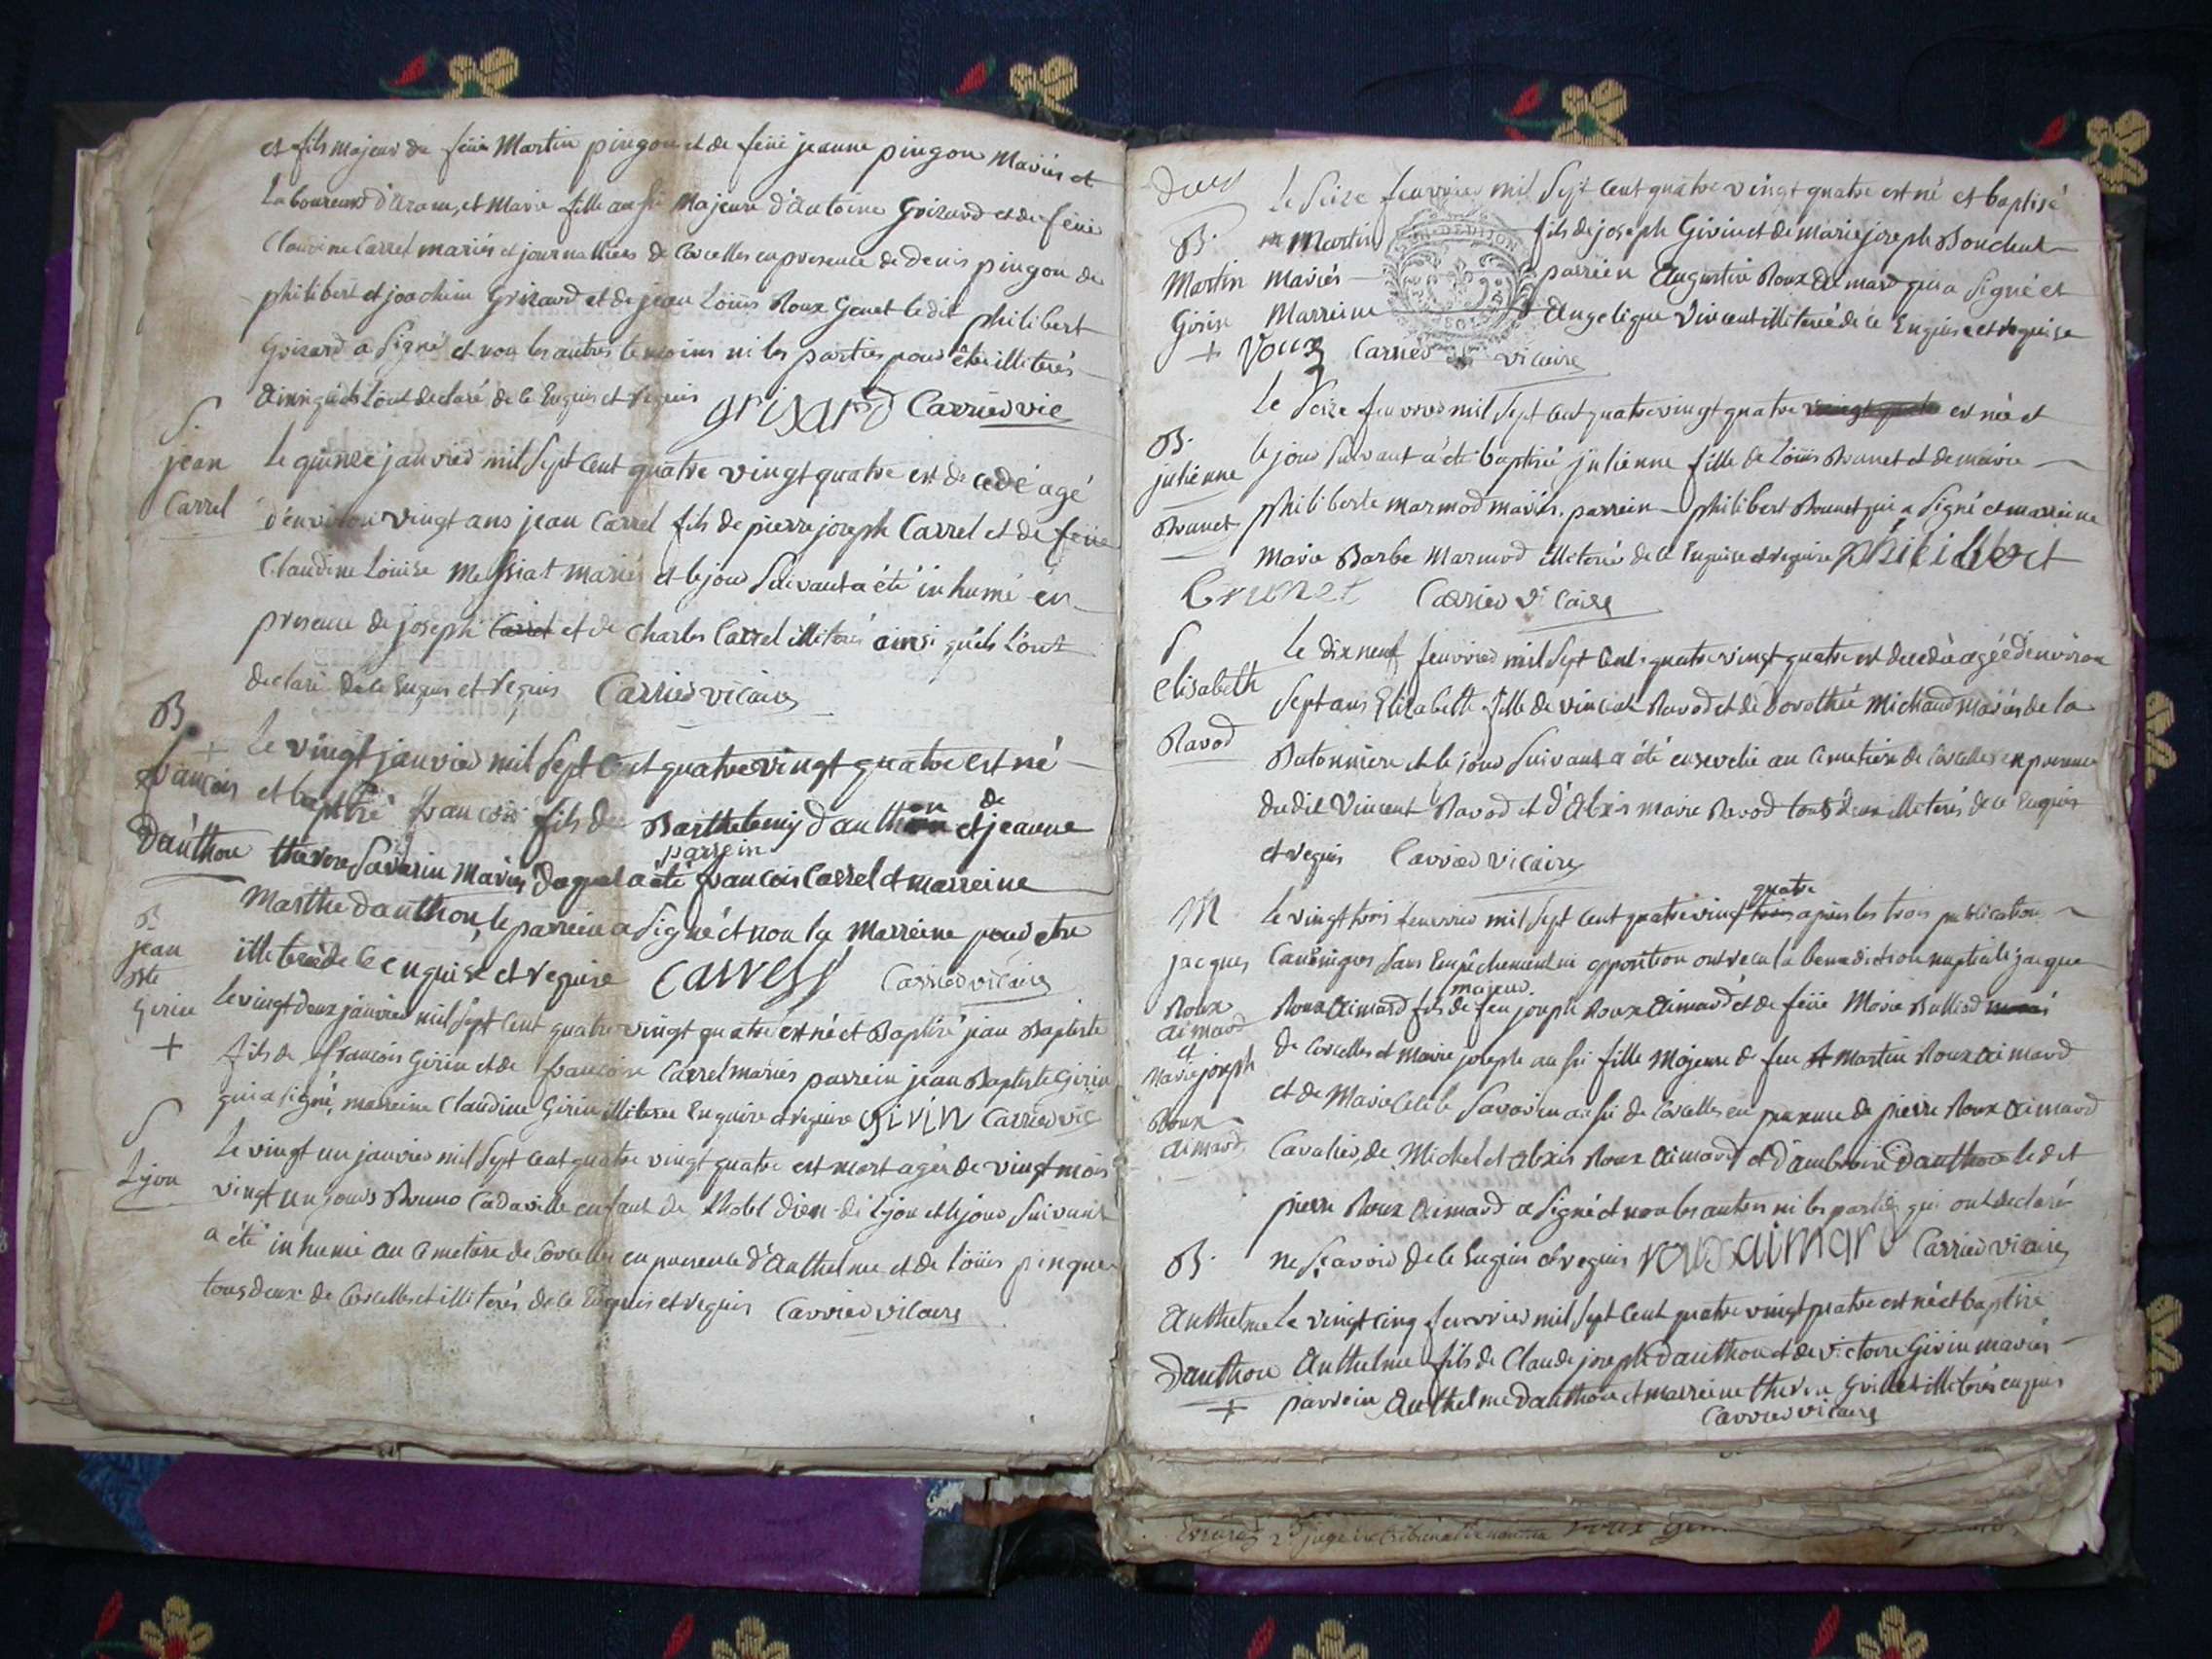 et fils majeur de feüe Martin pingon et de feüe jeanne pingon Mariés et
Laboureurs d'aranc, et Marie fille aussi Majeure d'antoine Grisard et de feüe
Claudine Carrel mariés et journalliers de Corcelles en presence de denis pingon de
philibert et joachim Grisard et de jean Loüis Roux Genet ledit philibert
Grisard a signé et non les autres temoins ni les parties pour être illiterés
ainsi qu'ils l'ont declaré de ce Enquis et requis grisard Carrier vic
S.
jean
Carrel
Le quinze janvier mil sept cent quatre vingt quatre est decedé agé
d'environ vingt ans jean Carrel fils de pierre joseph Carrel et de feüe
Claudine Louise Messiat mariés et le jour suivant a été inhumé en
presence de joseph Carrel et de Charles Carrel illiterés ainsi qu'ils l'ont
declaré de ce Enquis et requis Carrier vicaire
B.
+
francois
Danthon
Le vingt janvier mil sept cent quatre vingt quatre est né
et baptisé francois fils de Barthelemy danthon et de jeanne
therese Savarin Mariés duquel a été parrein francois Carrel et marreine
Marthe danthon, le parrein a signé et non la Marreine pour etre
illiterée de ce enquise et requise Carrel Carrier vicaire
B
jean
Bte
Girin
+
Le vingt deux janvier mil sept cent quatre vingt quatre est né et Baptisé jean Baptiste
fils de francois Girin et de francoise Carrel mariés parrein jean Baptiste Girin
qui a signé, marreine Claudine Girin illiteree Enquise et requise Girin Carrier vic
S
Lyon
Le vingt un janvier mil sept cent quatre vingt quatre est mort agée de vingt mois
vingt un jours Bruno Cadaville enfant de l'hotel dieu de Lyon et le jour suivant
a été inhumé au cimetiere de Corcelles en presence d'Anthelme et de loüis pingue
tous deux de Corcelles et illiterés de ce Enquis et requis Carrier vicaire
deux
B.
Martin
Girin
+
Le seize fevrier mil sept cent quatre vingt quatre est né et baptisé
Martin fils de joseph Girin et de marie joseph Bouchut
Mariés parrein Augustin Roux aimard qui a signé et
Marreine Angelique Vincent illiterée de ce Enquise et requise
Roux Carrier vicaire
B.
julienne
Brunet
Le seize fevrier mil sept cent quatre vingt quatre est née et
le jour suivant a été baptisée julienne fille de Loüis Brunet et de marie
philiberte marmod mariés. parrein philibert Brunet qui a signé et marreine
Marie Barbe Marmod illiterée de ce Enquise et requise philibert
brunet Carrier vicaire
S
Elisabeth
Ravod
Le dix neuf fevrier mil sept cent quatre vingt quatre est decedée agée d'environ
sept ans Elizabeth fille de vincent Ravod et de Dorothée Michaud mariés de la
Batonniere et le jour suivant a été ensevelie au cimetiere de Corcelles en presence
dudit Vincent Ravod et d'Alexis marie Ravod tous deux illiterés de ce Enquis
et requis Carrier vicaire
M
jacques
Roux
aimard
et
Marie joseph
Roux
aimard
Le vingt trois fevrier mil sept cent quatre vingt quatre après les trois publications
Canoniques sans Empêchement ni opposition ont recu la benediction nuptiale jacque
Roux aimard fils majeur de feu joseph Roux aimard et de feüe Marie Bulliod
de Corcelles et Marie joseph aussi fille Majeure de feu Martin Roux aimard
et de Marie Cecile Savarin aussi de Corcelles en presence de pierre Roux aimard
Cavalier, de Michel et alexis Roux aimard et d'ambroise danthon ledit
pierre Roux aimard a signé et non les autres ni les parties qui ont declaré
ne sçavoir de ce Enquis et requis rouxaimard Carrier vicaire
B.
Anthelme
Danthon
+
Le vingt cinq fevrier mil sept cent quatre vingt quatre est né et baptisé
Anthelme fils de Claude joseph danthon et de victoire Girin mariés
parrein Anthelme danthon et marreine therese Grillet illiterés enquis
Carrier vicaire